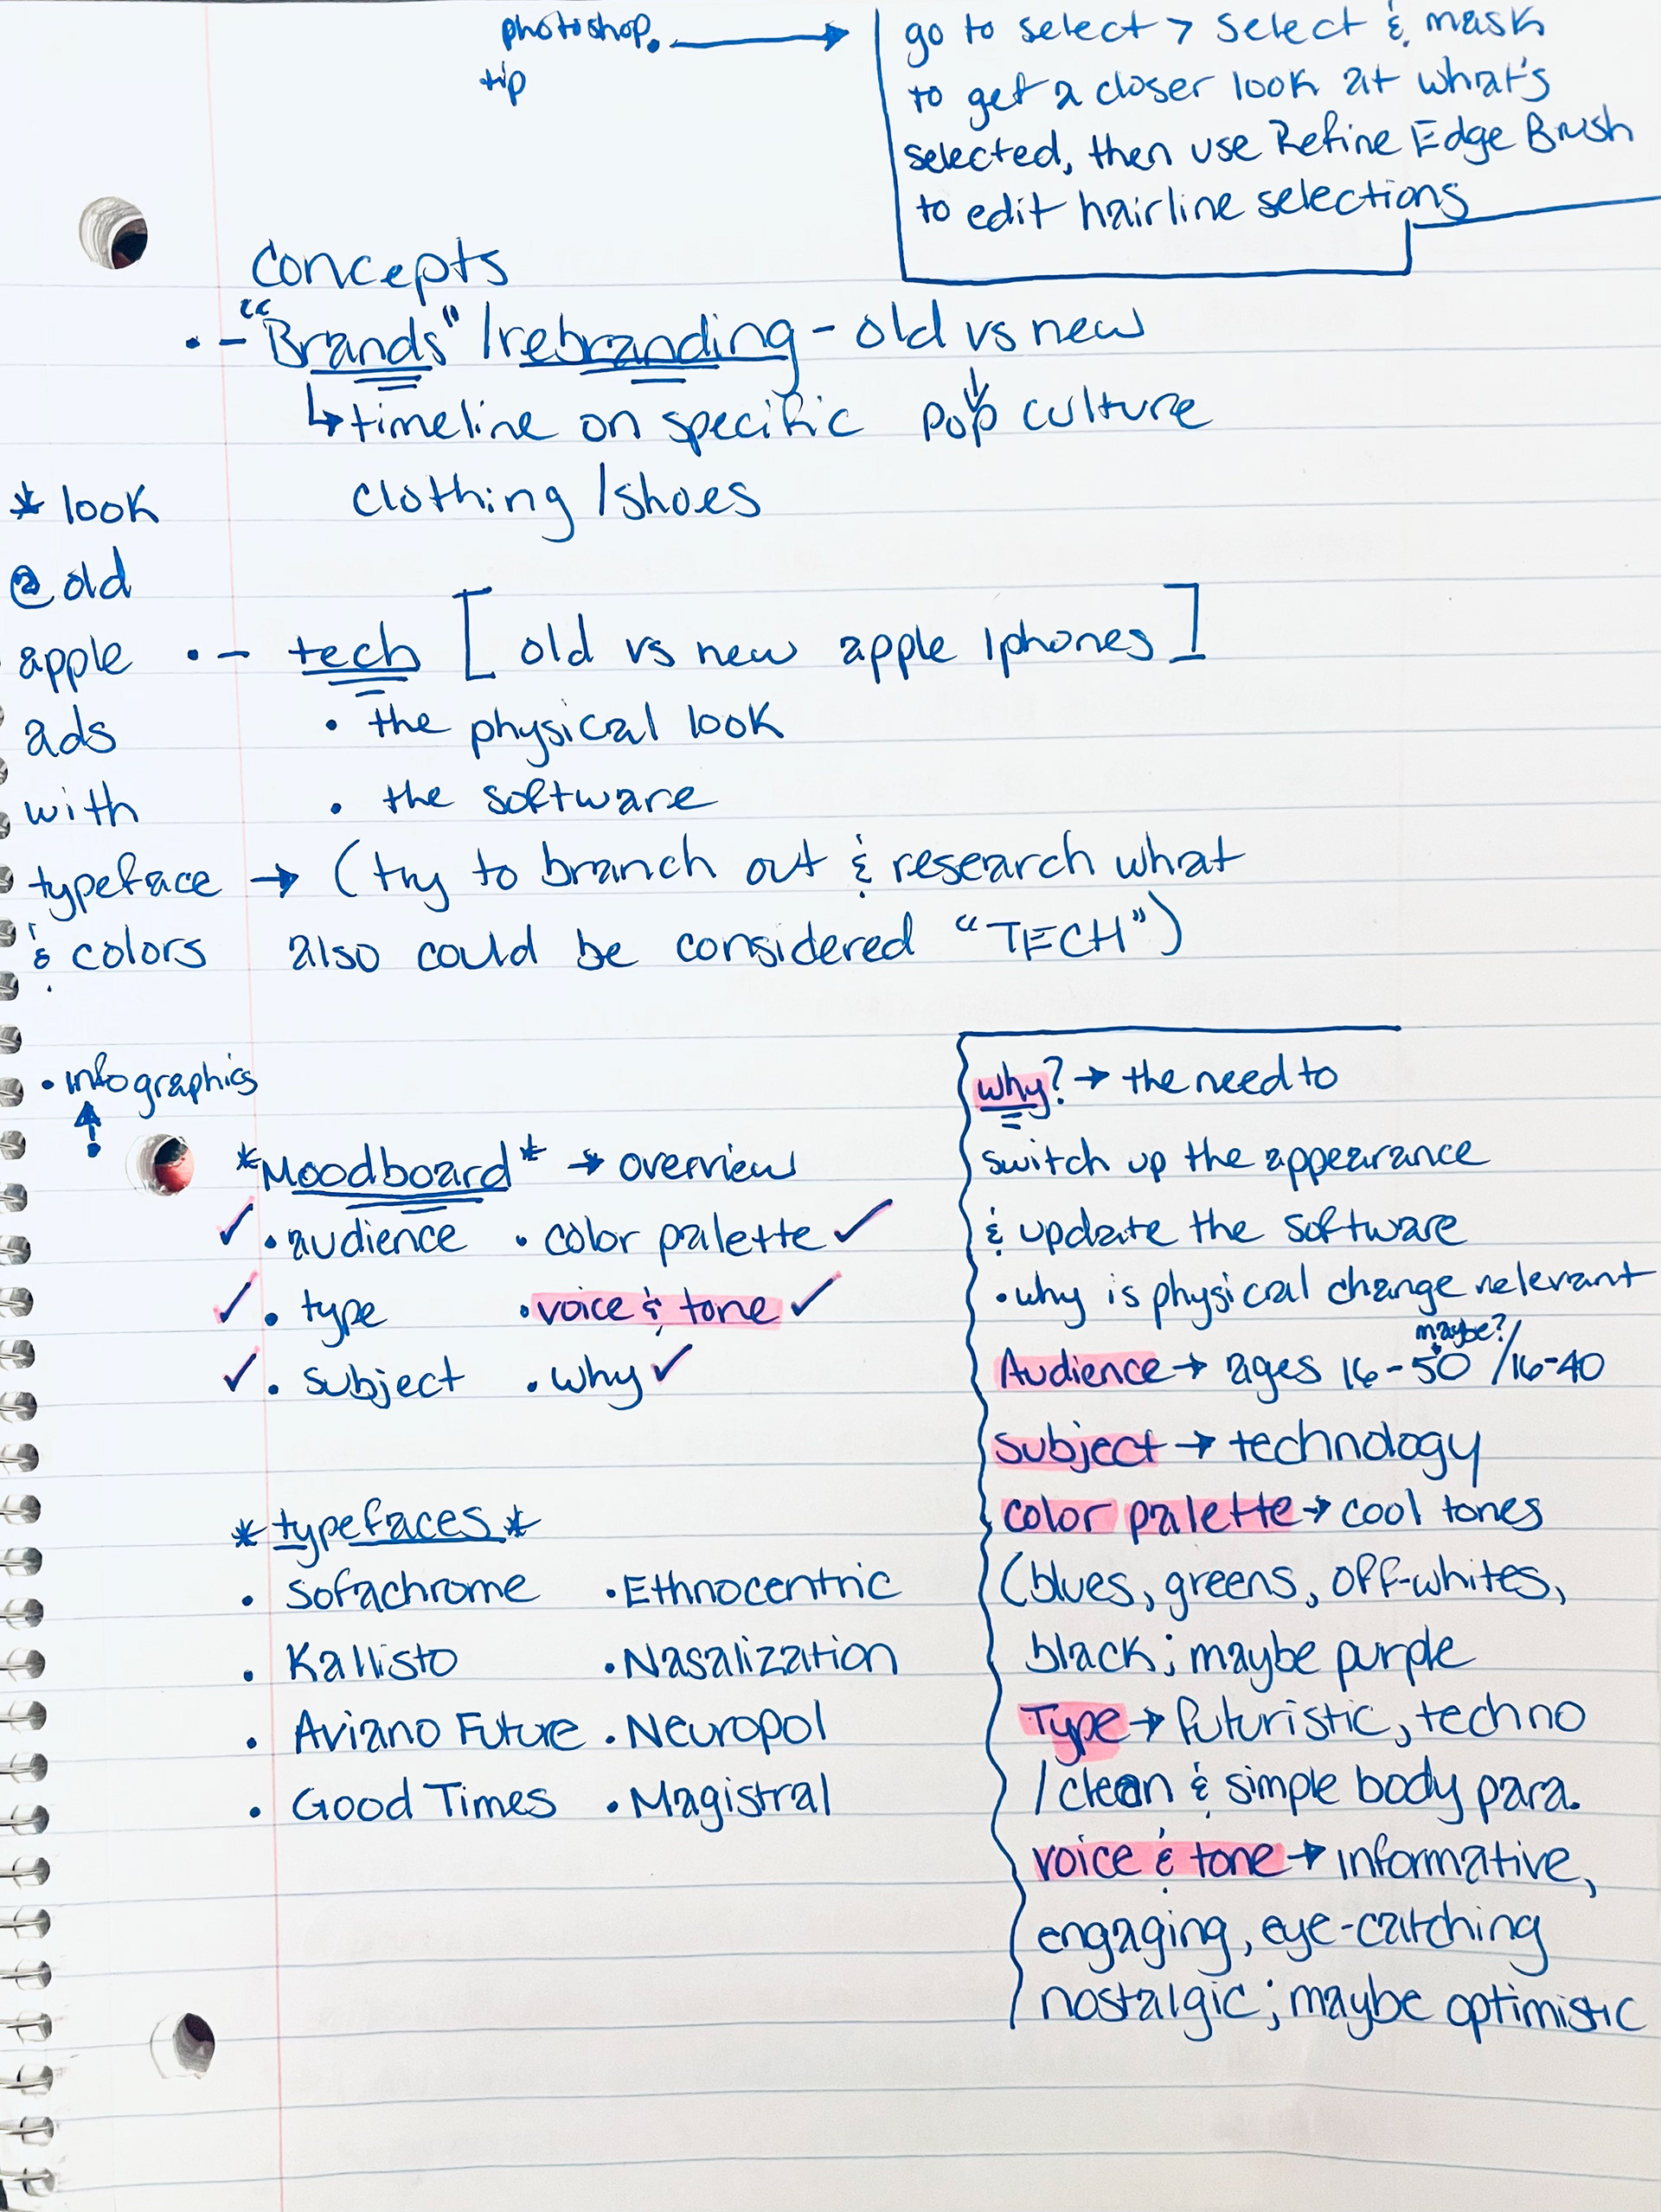 photoshop
tip
go to select > select & mask
to get a closer look at what's
selected, then use Refine Edge Brush
to edit hairline selections
Concepts
• - "Brands" / rebranding - old vs new
↳ timeline on specific pop culture
clothing / shoes
* look
@ old
apple
ads
with
typeface →
& colors
• - tech [ old vs new apple iphones ]
• the physical look
• the software
(try to branch out & research what
also could be considered "TECH")
• infographics
*Moodboard* → overview
✓ • audience • color palette ✓
✓ • type • voice & tone ✓
✓ • subject • why ✓
*typefaces*
• Sofachrome • Ethnocentric
• Kallisto • Nasalization
• Aviano Future • Neuropol
• Good Times • Magistral
why? → the need to
switch up the appearance
& update the software
• why is physical change relevant
maybe?
Audience → ages 16-50 / 16-40
subject → technology
color palette → cool tones
(blues, greens, off-whites,
black; maybe purple
Type → futuristic, techno
/ clean & simple body para.
voice & tone → informative,
engaging, eye-catching
nostalgic; maybe optimistic